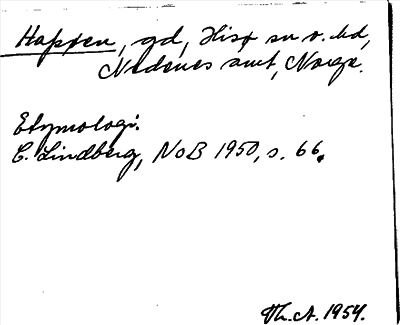 Happen, gd, Hisø sn o. hd,
Nedenes amt, Norge.
Etymologi.
C. Lindberg, NoB 1950, s. 66.
Th. A. 1954.